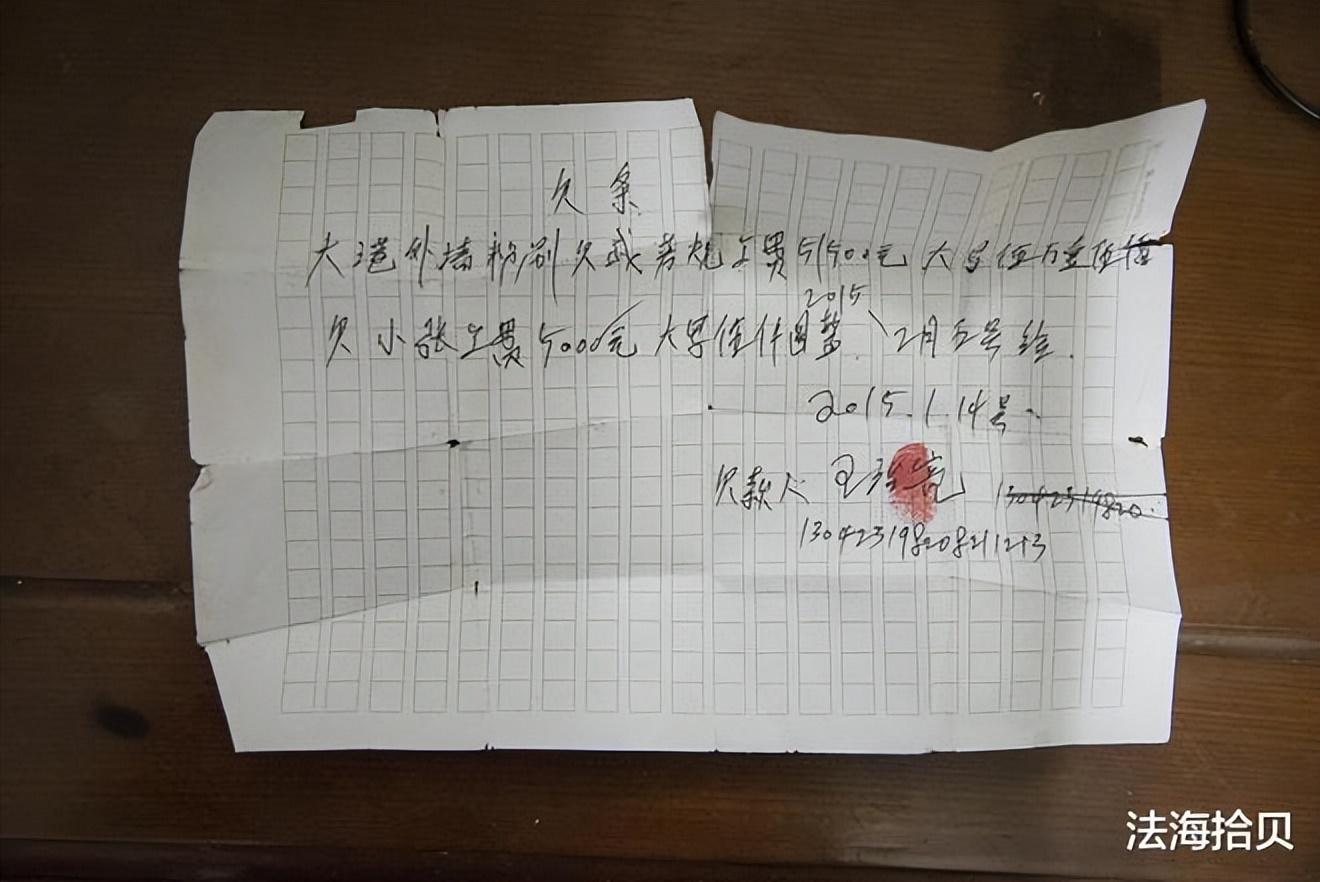 欠条
大港外墙粉刷欠 工费51500元 大写伍万壹仟伍佰
2015
欠小张工费5000元 大写伍仟圆整、2月五号给.
2015.1.14号
欠款人 王 亮 13042319820
130423198208211213
法海拾贝